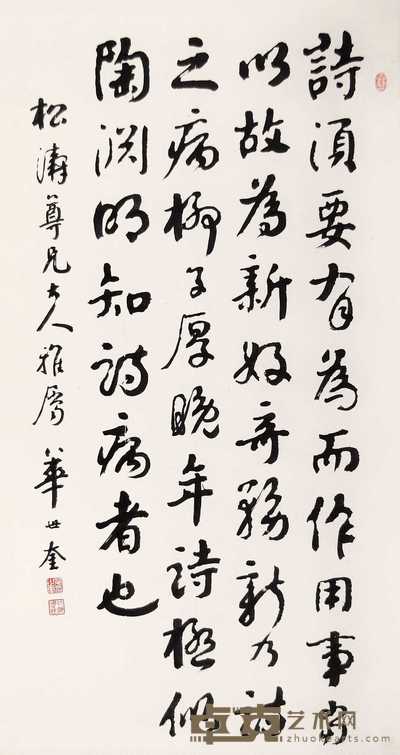 詩須要有為而作用事當
以故為新好奇務新乃詩
之病柳子厚晚年詩極似
陶渊明知詩病者也
松濤尊兄大人雅屬 華世奎
卓克艺术网
zhuokearts.com